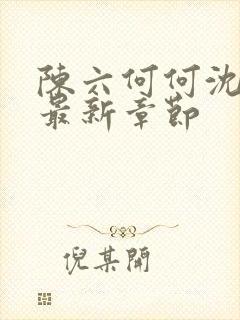 陳六何何沈
最新章節
倪某開